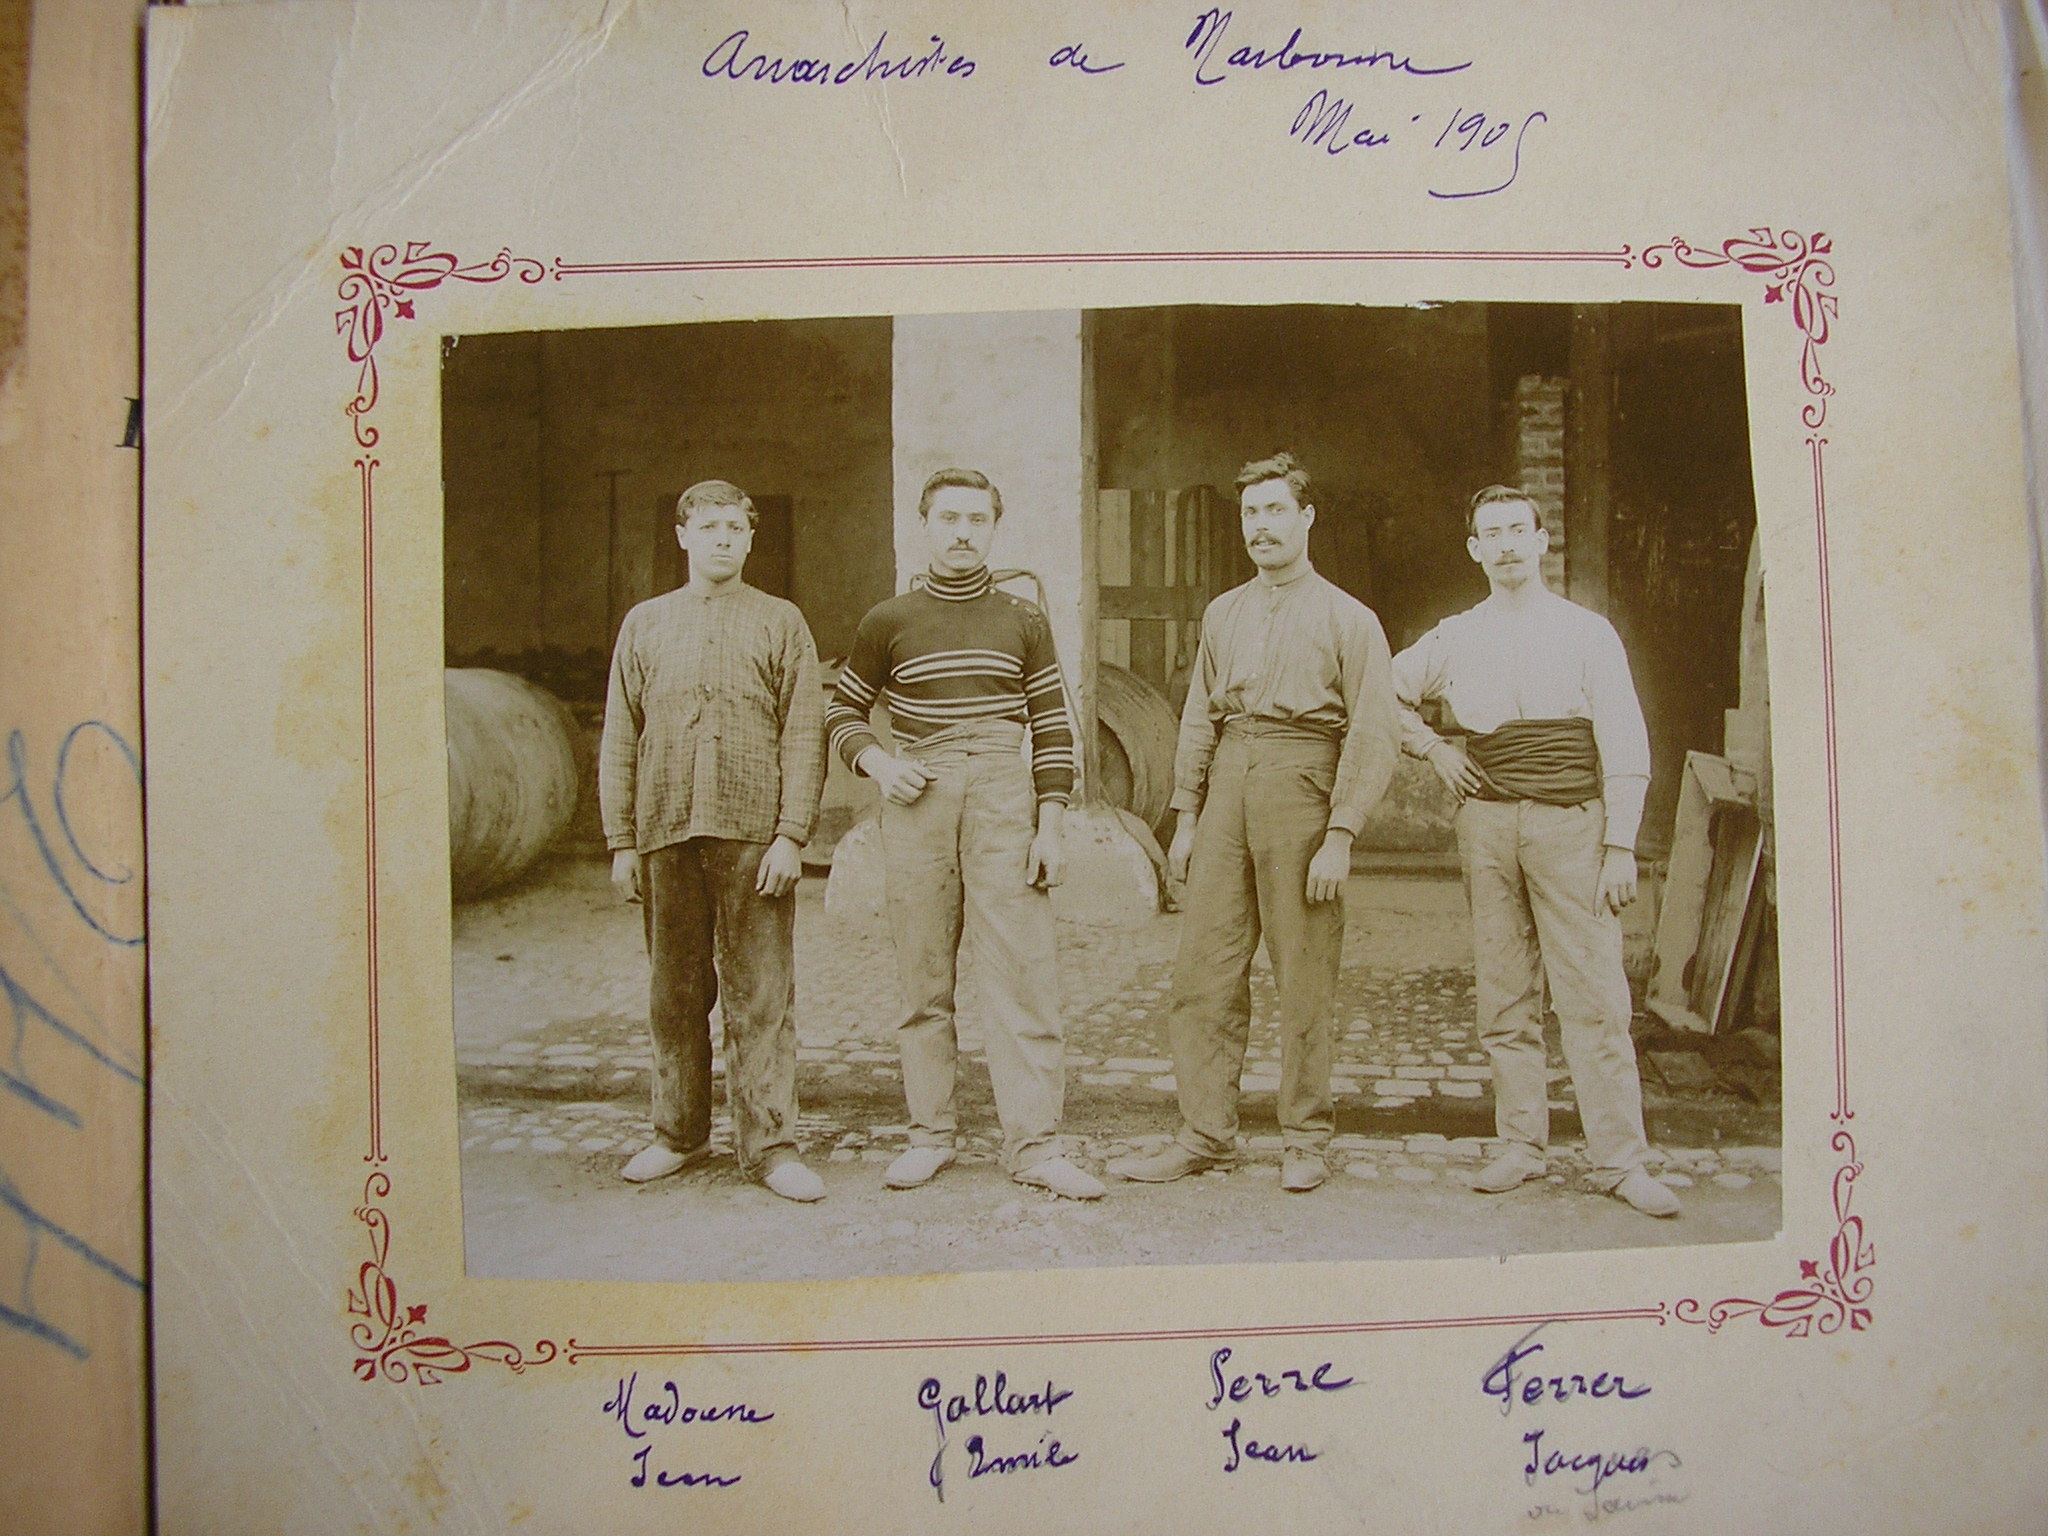 Anarchistes de Narbonne
Mai 1905
Madoune Gallart Serre Ferrer
Jean Emile Jean Jacques
ou